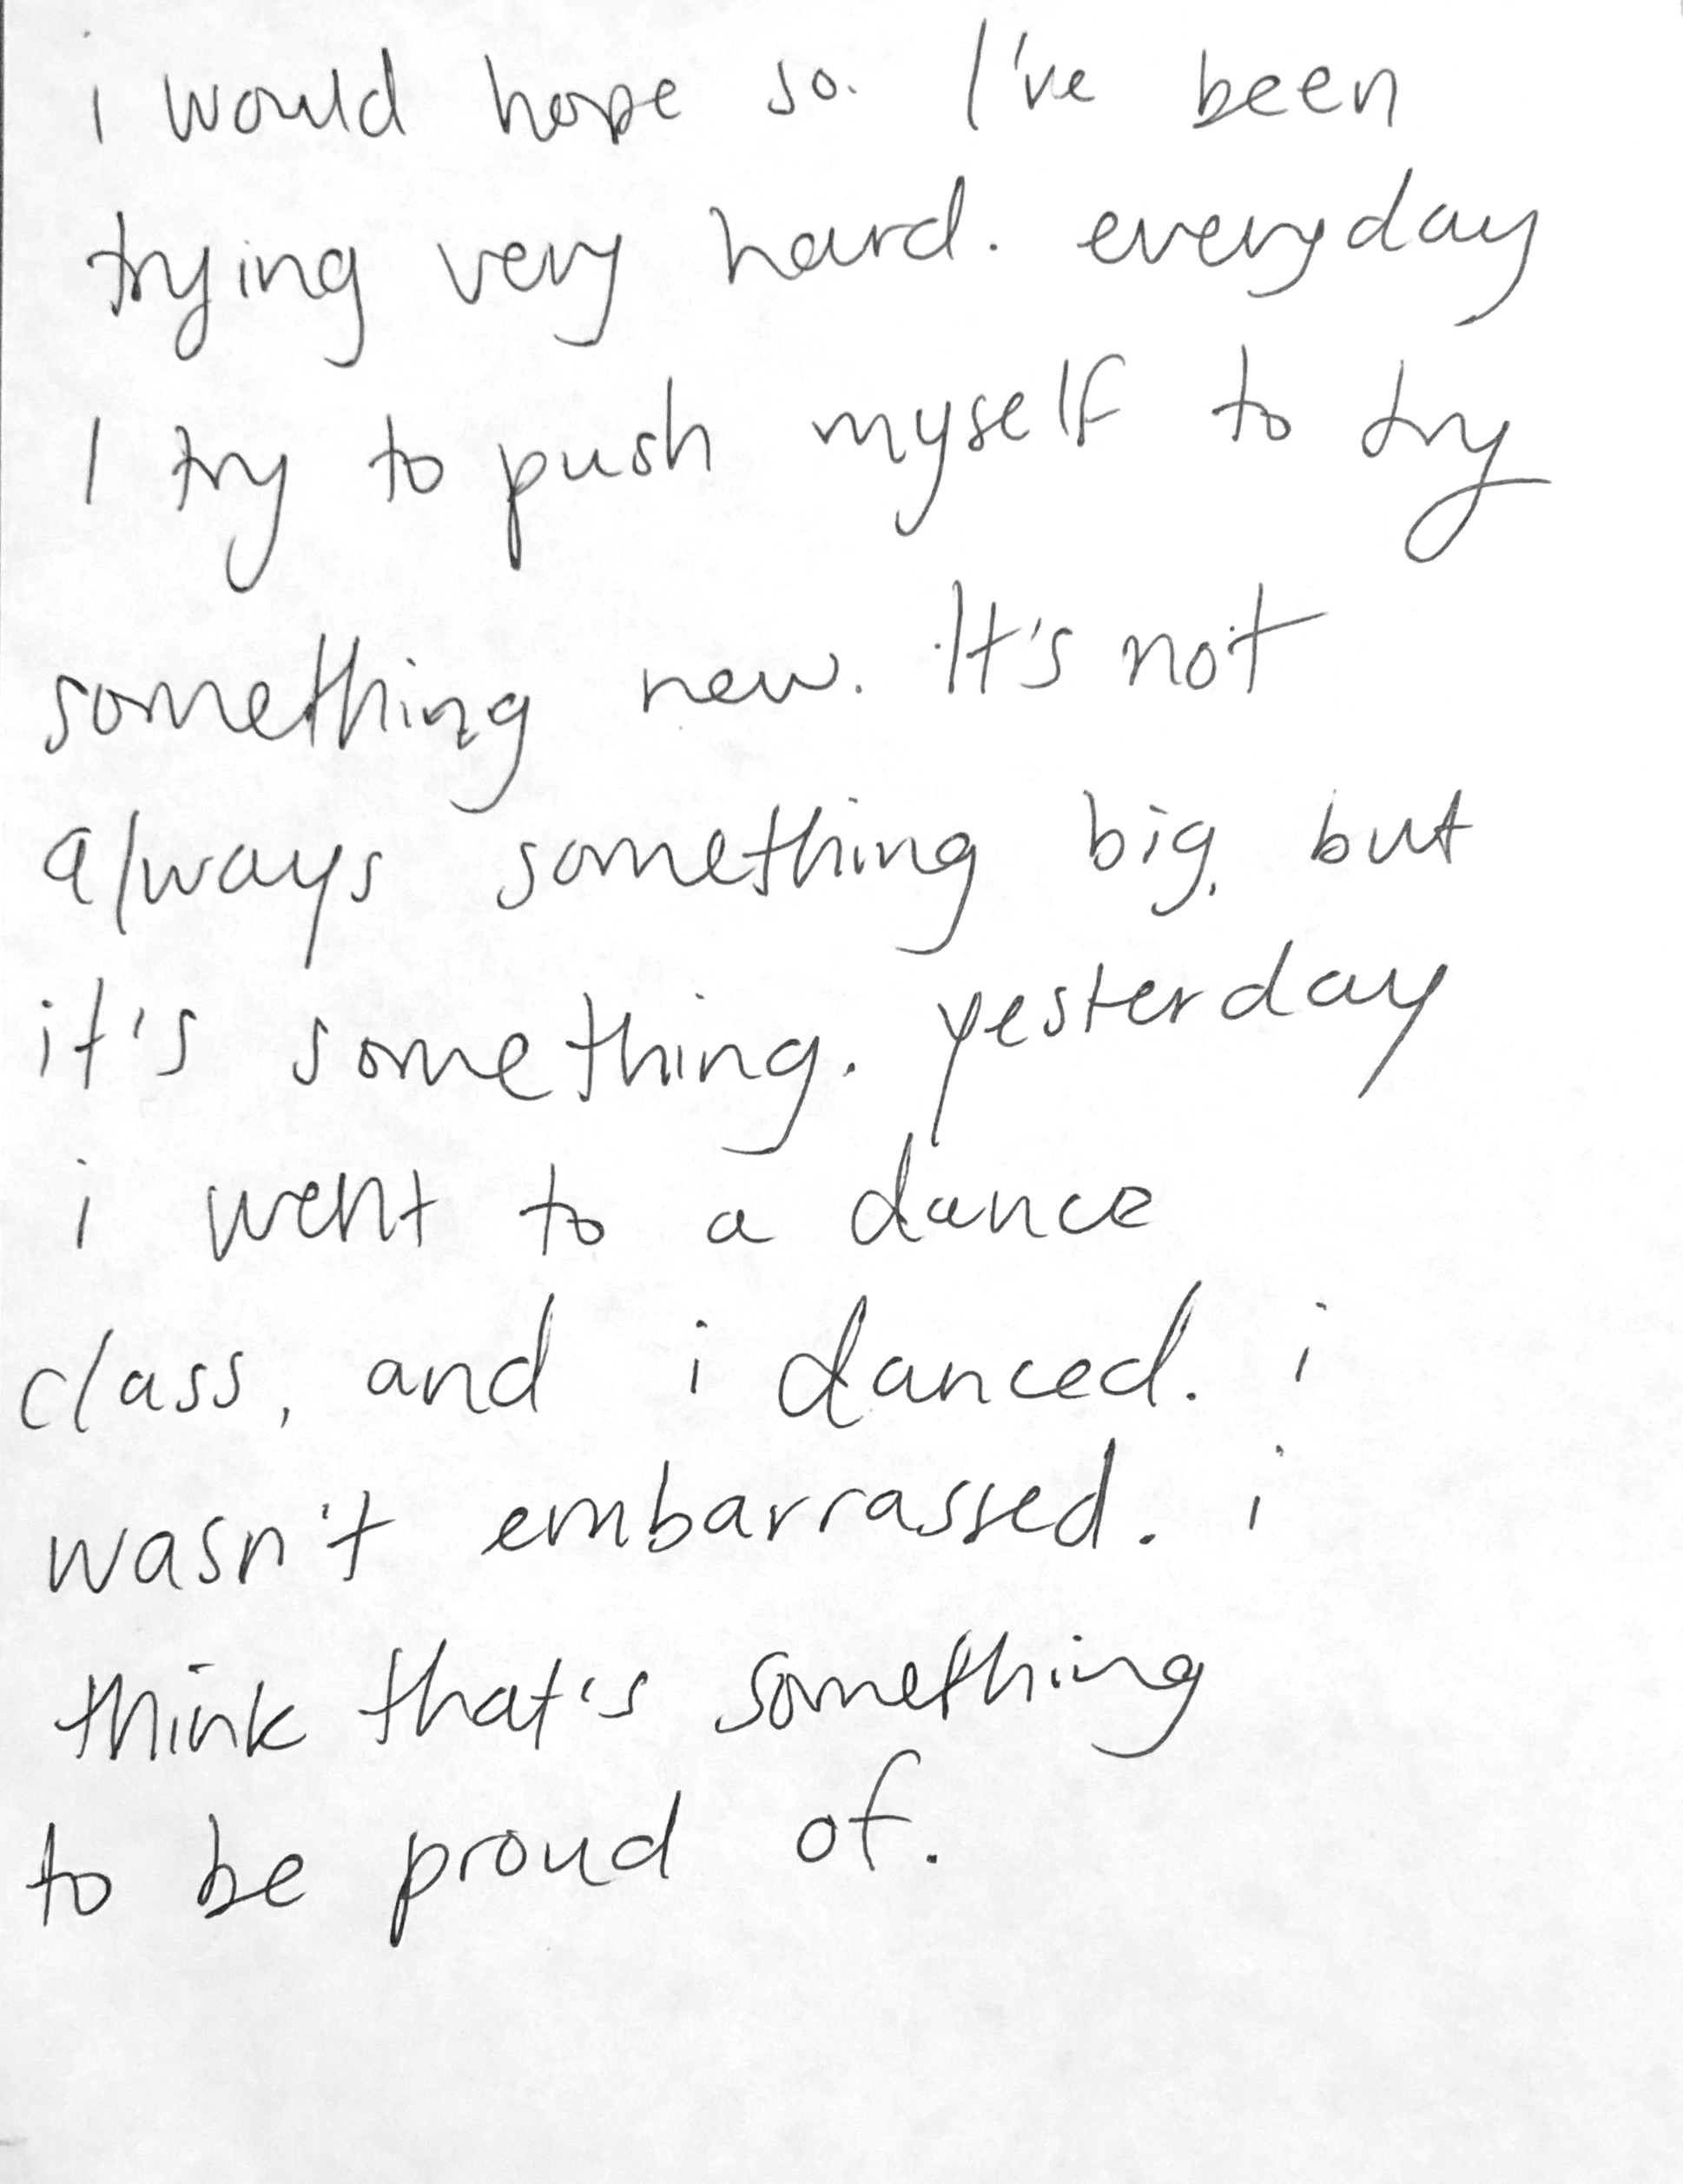 i would hope so. I've been
trying very hard. everyday
I try to push myself to try
something new. It's not
always something big, but
it's something. yesterday
i went to a dance
class, and i danced. i
wasn't embarrassed. i
think that's something
to be proud of.